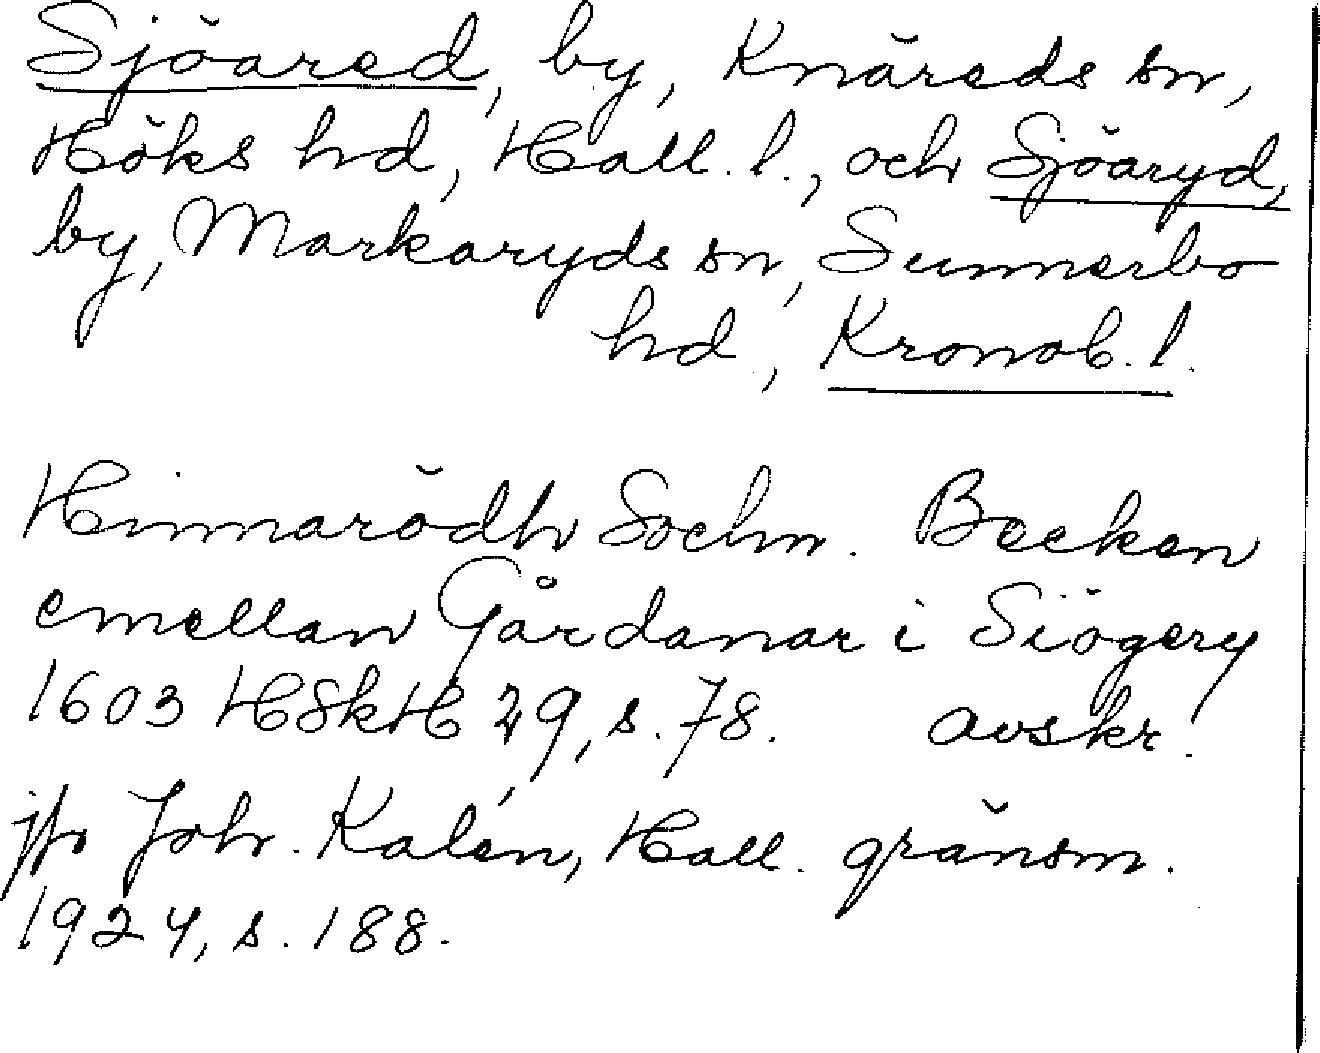 Sjöared, by, Knäreds sn,
Höks hd, Hall. l., och Sjöaryd,
by, Markaryds sn, Sunnerbo
hd, Kronob. l.
Hinnarödh Sochn. Becken
emellan Gårdanar i Siögery
1603 HSkH 29, s. 78. avskr.
jfr Joh. Kalén, Hall. gränsm.
1924, s. 188.